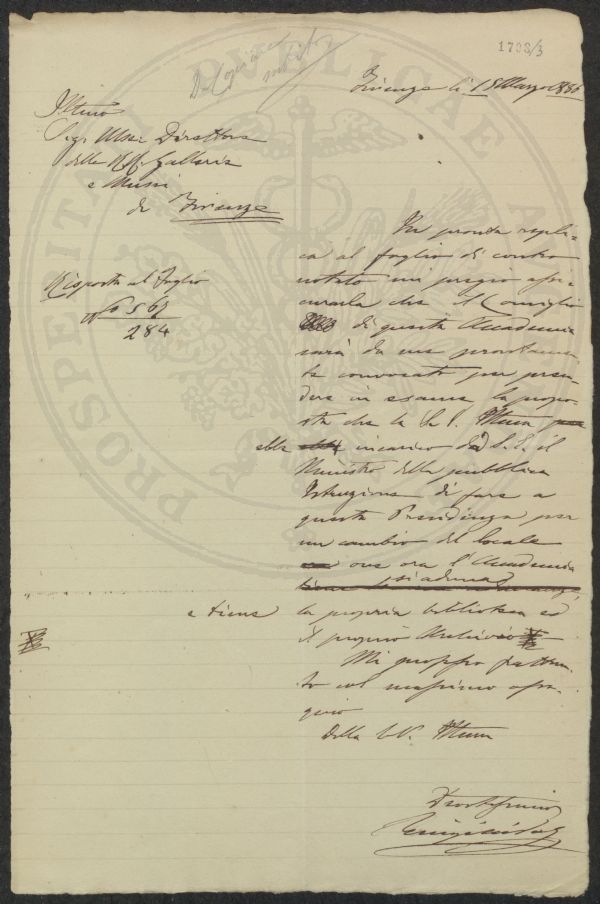 1798/3
Firenze li 15 Marzo 1886
Illmo
Sigr Direttore
delle RR. Gallerie
e Musei
di Firenze
Risposta al Foglio
No 569
284
In pronta repli-
ca al foglio di contro
notato mi pregio assi-
curarla che il Consiglio
di questa Accademia
sarà da me prontamen-
te convocato per pren-
dere in esame la propo-
sta che la S. V. Illma
ebbe incarico da S. E. il
Ministro della pubblica
Istruzione di fare a
questa Presidenza per
un cambio del locale
ove ora l'Accademia
si aduna
e tiene la propria biblioteca ed
il proprio Archivio
Mi professo pertan-
to col massimo osse-
quio
Della S. V. Illma
Devotissimo
PROSPERITATI PVBLICAE